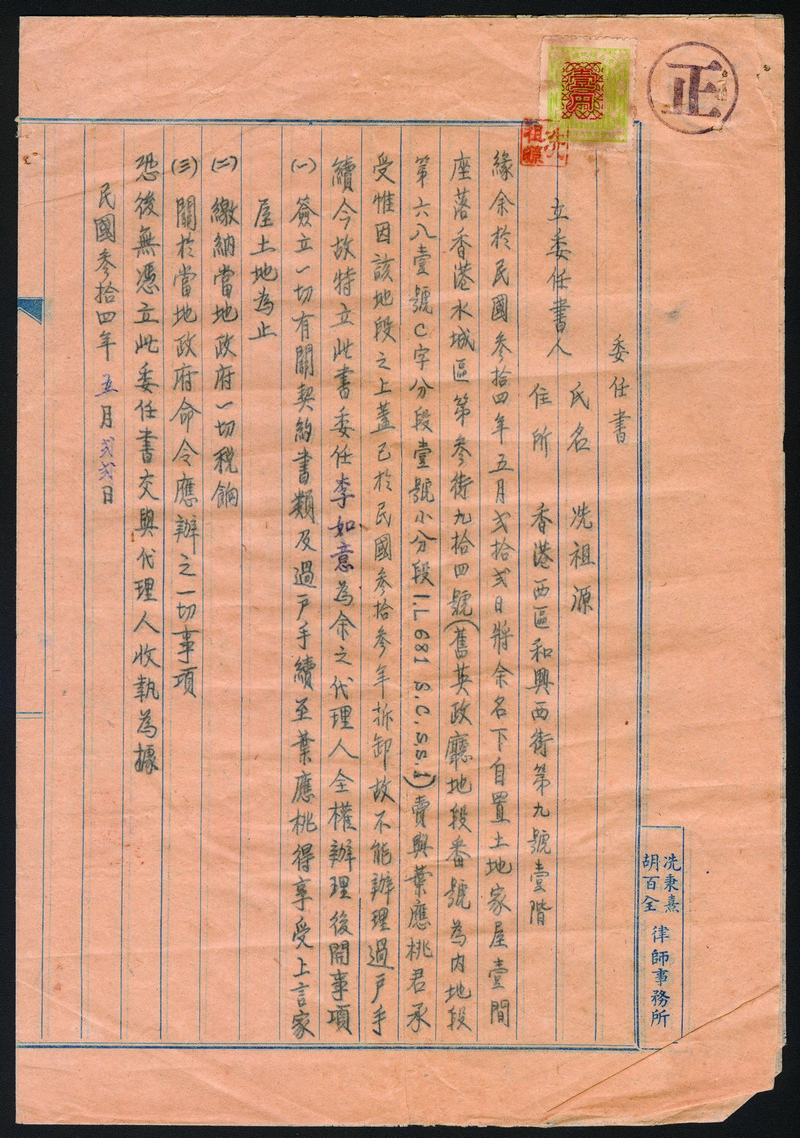 正
壹兩
冼祖源
委任書
立委任書人 氏名 冼祖源
住所 香港西區和興西街第九號壹階
緣余於民國參拾四年五月弍拾弍日將余名下自置土地家屋壹間
座落香港水城區第參街九拾四號(舊英政廳地段番號為内地段
第六八壹號C字分段壹號小分段I.L 681 S.C.S.S.1)賣與葉應桃君承
受惟因該地段之上蓋已於民國參拾參年拆卸故不能辦理過戶手
續今故特立此書委任李如意為余之代理人全權辦理後開事項
㈠ 簽立一切有關契約書類及過戶手續至葉應桃得享受上言家
屋土地為止
㈡ 繳納當地政府一切稅餉
㈢ 關於當地政府命令應辦之一切事項
恐後無憑立此委任書交與代理人收執為據
民國參拾四年五月弍弍日
冼秉熹
胡百全
律師事務所